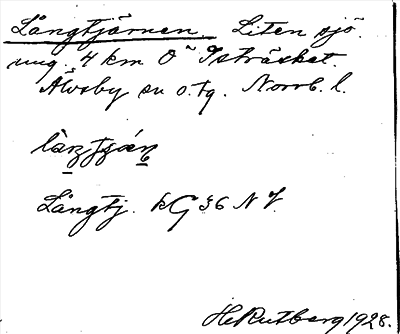 Långtjärnen. Liten sjö.
ung. 4 km O~ Isträsket.
Älvsby sn o. tg. Norrb. l.
Långtj. kG 36 NV.
H Rutberg 1928.